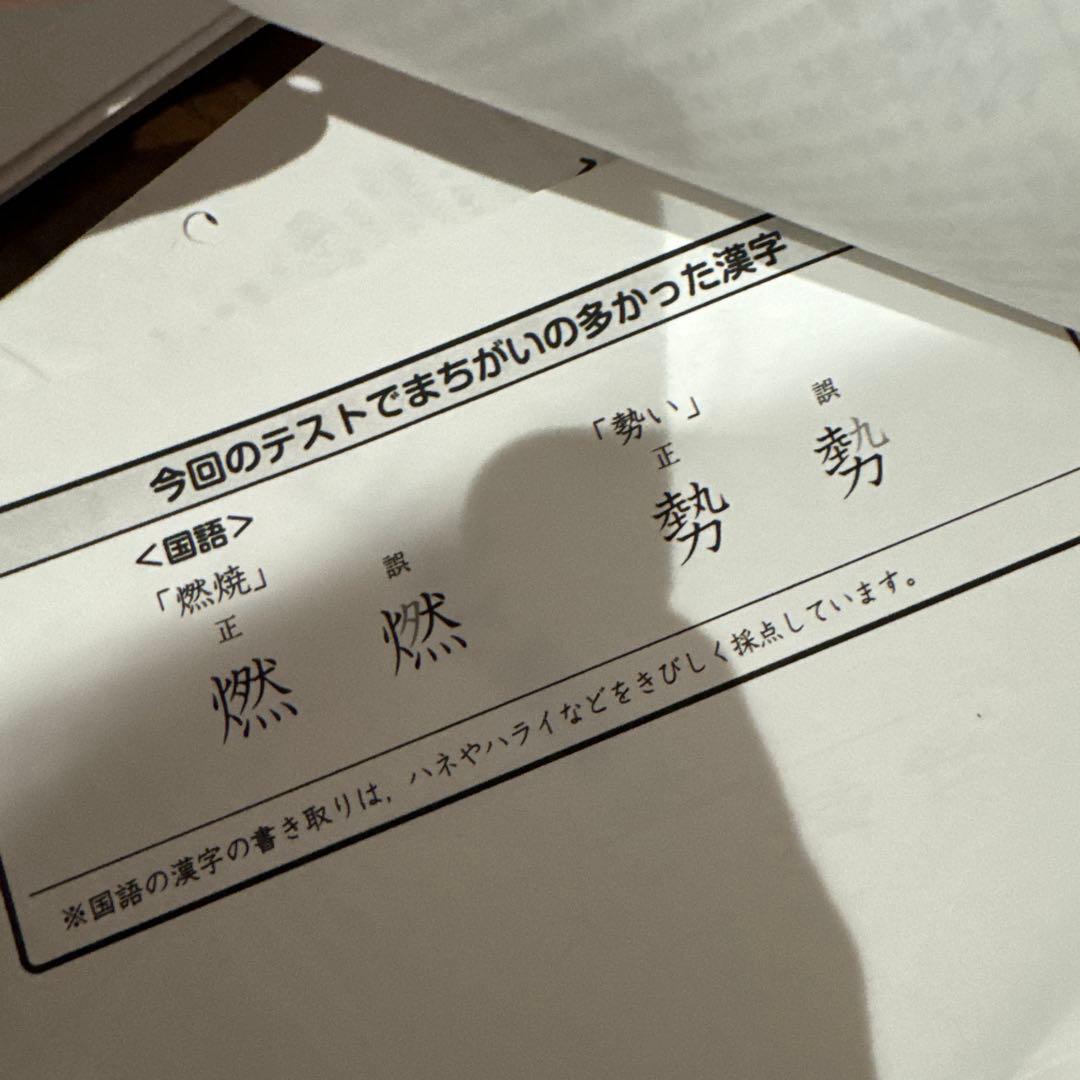 今回のテストでまちがいの多かった漢字
<国語>
「燃焼」
正
燃
誤
「勢い」
正
勢
誤
※国語の漢字の書き取りは，ハネやハライなどをきびしく採点しています。